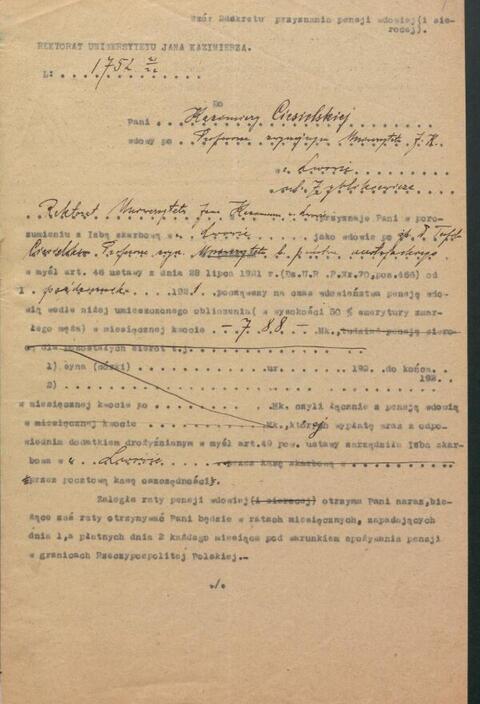 Wzór Dekretu przyznania pensji wdowiej(i sie-
rocej).
REKTORAT UNIWERSYTETU JANA KAZIMIERZA.
L: 1752
Do
Pani Kazimiery Ciesielskiej
wdowy po Profesorze zwyczajnym Uniwersytetu J. K.
we Lwowie
Rektorat Uniwersytetu Jana Kazimierza we Lwowie przyznaje Pani w poro-
zumieniu z Izbą skarbową w Lwowie jako wdowie po
Profesorze Uniwersytetu b. austrjackiego
w myśl art. 46 ustawy z dnia 28 lipca 1921 r (Dz.U.R.P.Nr.70,poz.466) od
1 października 1921, począwszy na czas wdowieństwa pensję wdo-
wią wedle niżej umieszczonego obliczenia (w wysokości 50 % emerytury zmar-
łego męża) w miesięcznej kwocie -788- Mk., tudzież pensję siero-
cą dla pozostałych sierot t.j.
1) syna (córki) ur. 192 do końca
2) 192
w miesięcznej kwocie po Mk. czyli łącznie z pensją wdowią
w miesięcznej kwocie Mk., której wypłatę wraz z odpo-
wiednim dodatkiem drożyźnianym w myśl art.49 pow. ustawy zarządziła Izba skar-
bowa w Lwowie przez kasę skarbową w
(przez pocztową kasę oszczędności).
Zaległe raty pensji wdowiej(i sierocej) otrzyma Pani naraz,bie-
żące zaś raty otrzymywać Pani będzie w ratach miesięcznych, zapadających
dnia 1,a płatnych dnia 2 każdego miesiąca pod warunkiem spożywania pensji
w granicach Rzeczypospolitej Polskiej.-
./.